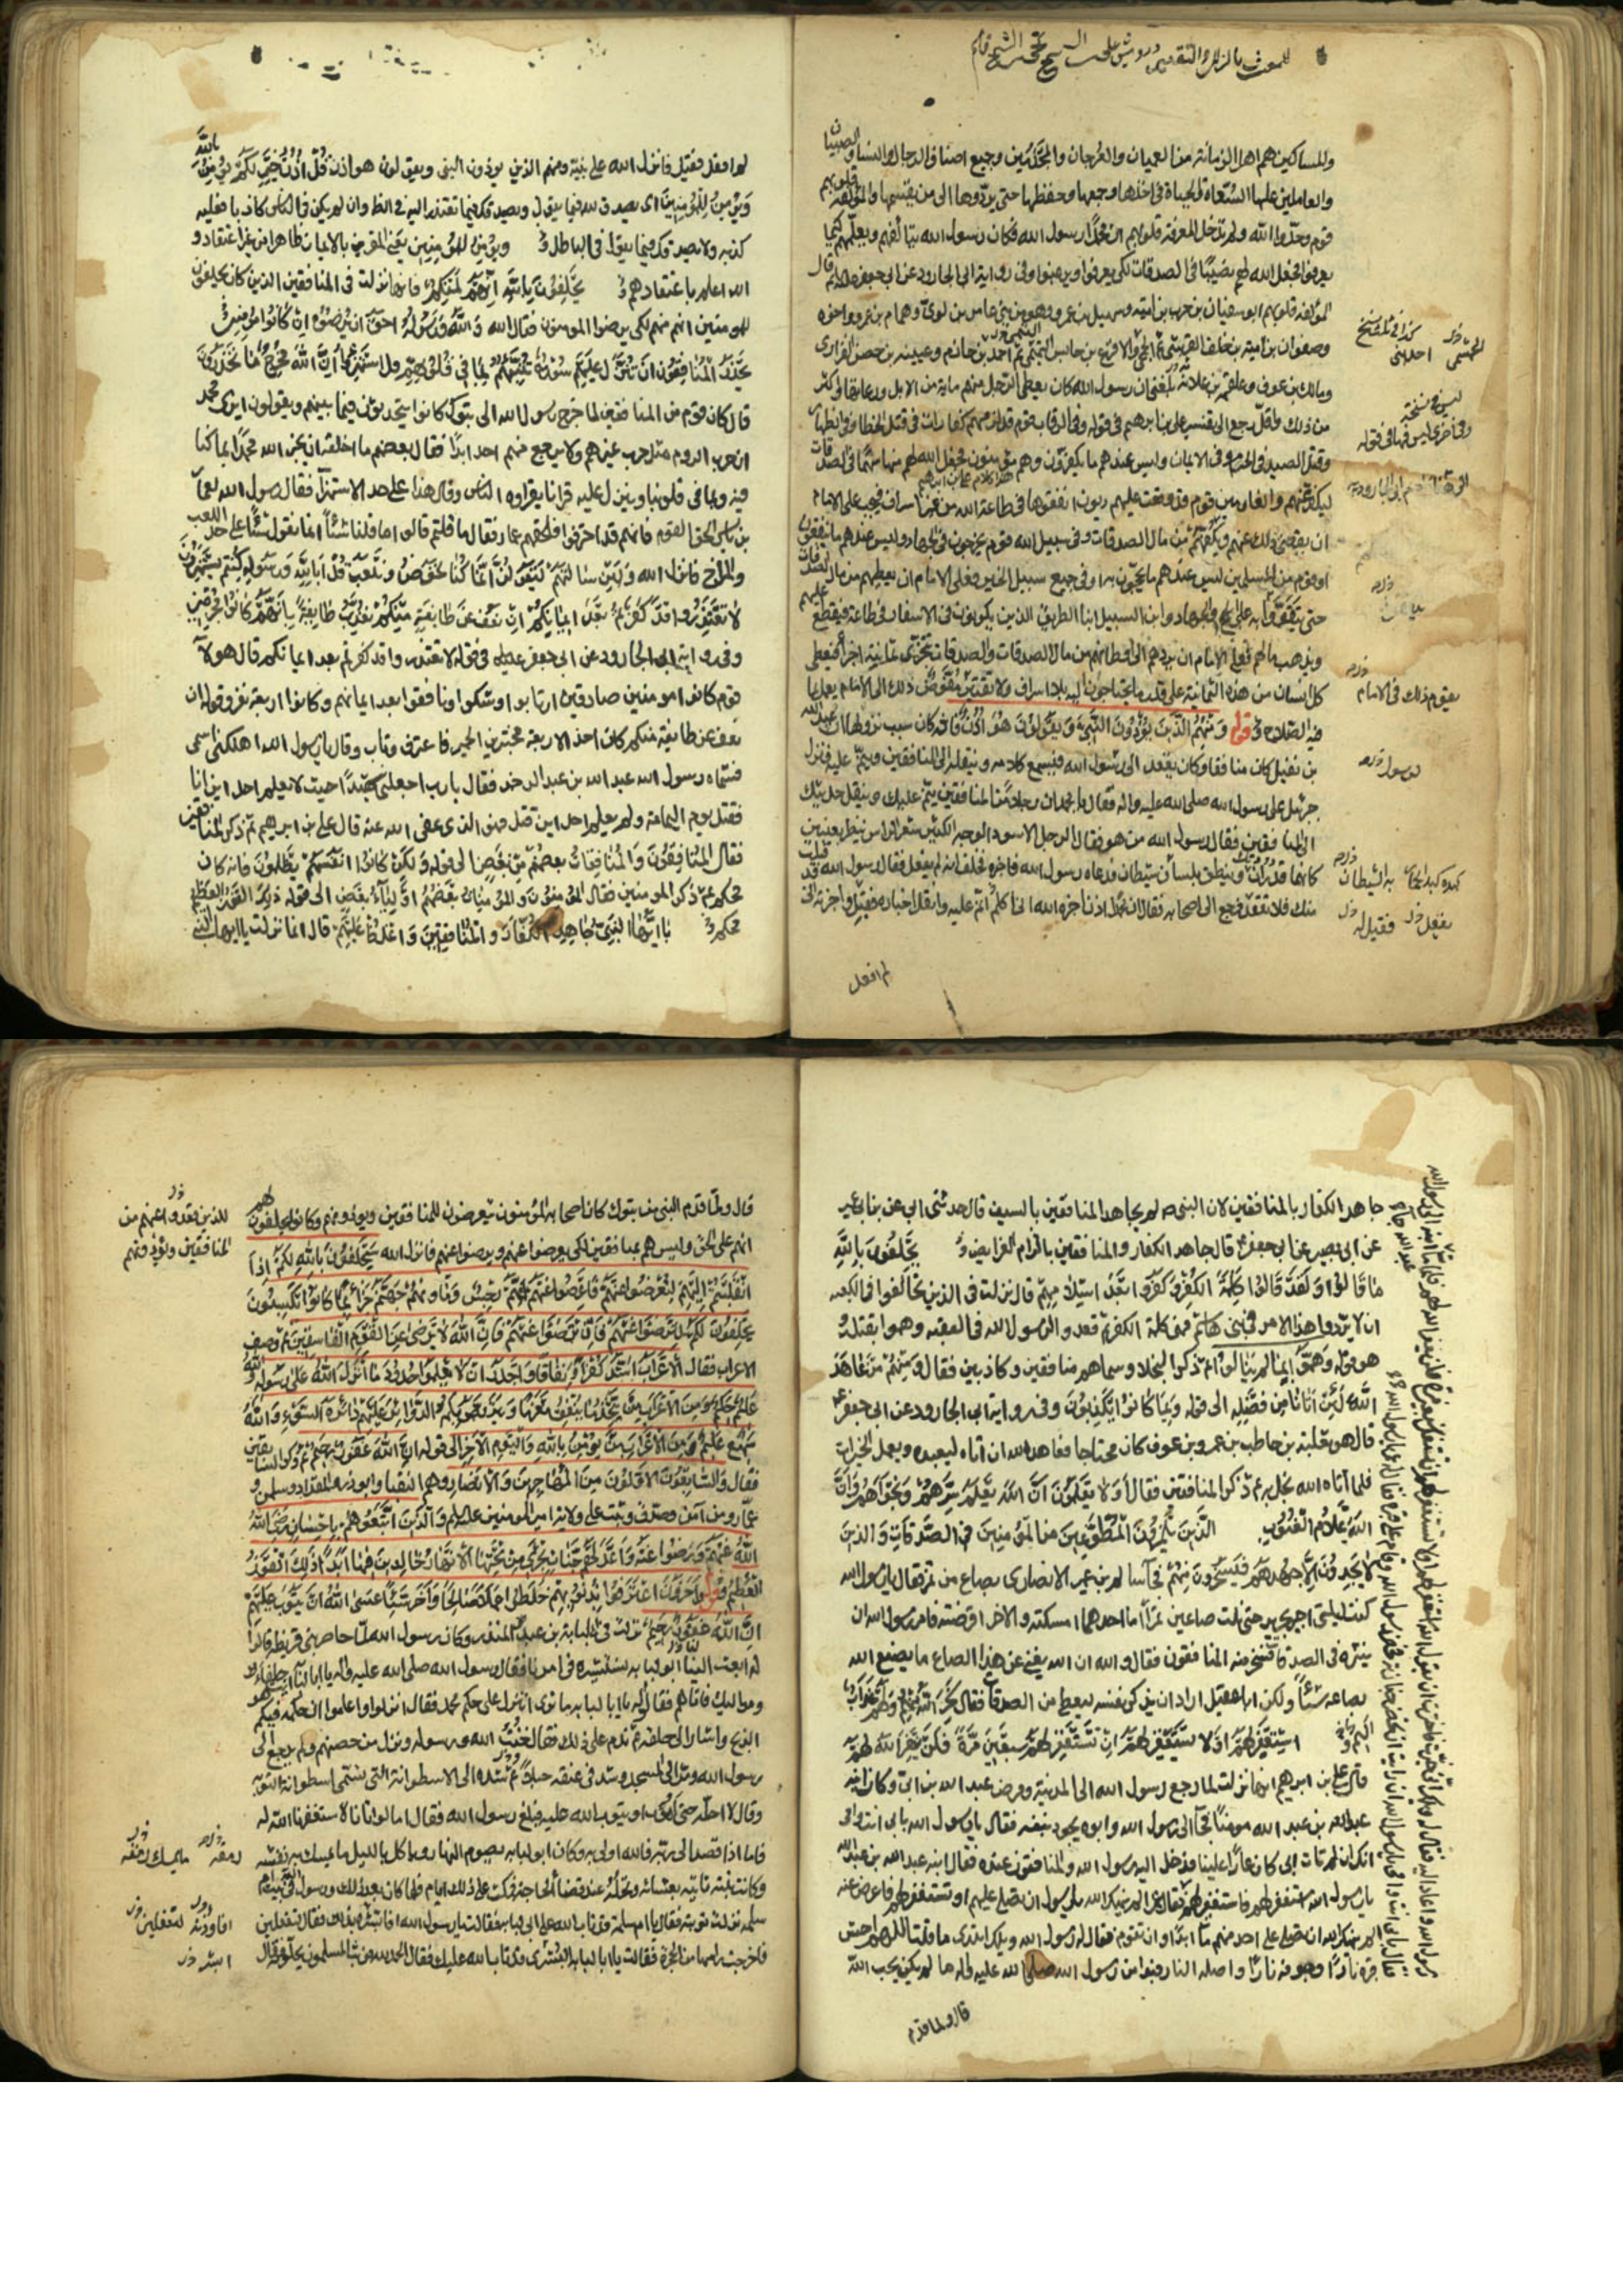 والمساكين هم اهل الزمانة من العميان والعرجان والمجذمين وجميع اصناف الرجال والنساء والصبيان
والعاملين عليها السعاة والجباة فى اخذها وجمعها وحفظها حتى يؤدوها الى من يقسمها والمؤلفة قلوبهم
قوم وحدوا الله ولم تدخل المعرفة قلوبهم ان محمدا رسول الله فكان رسول الله يتألفهم ويعلمهم كيما
يعرفوا فجعل الله لهم نصيبا فى الصدقات لكى يعرفوا ويرغبوا وفى رواية ابى الجارود عن ابى جعفر قال
المؤلفة قلوبهم ابو سفيان بن حرب بن امية وسهيل بن عمرو وهو من بنى عامر بن لوى وهمام بن عمرو واخوه
وصفوان بن امية بن خلف القرشى ثم الجمحى والاقرع بن حابس التميمى ثم احد بن حازم وعيينة بن حصن الفزارى
ومالك بن عوف وعلقمة بن علاثة بلغنى ان رسول الله كان يعطى الرجل منهم ماية من الابل ورعاتها واكثر
من ذلك واقل رجع الى تفسير على بن ابرهيم فى قوله وفى الرقاب قوم قد لزمهم كفارات فى قتل الخطا وفى الظهار
وقتل الصيد فى الحرم وفى الايمان وليس عندهم ما يكفرون وهم مؤمنون فجعل الله لهم منها سهما فى الصدقات
ليكفر عنهم والغارمين قوم قد وقعت عليهم ديون انفقوها فى طاعة الله من غير اسراف فيجب على الامام
ان يقضى ذلك عنهم ويكفهم من مال الصدقات وفى سبيل الله قوم يخرجون فى الجهاد وليس عندهم ما ينفقون
او قوم من المسلمين ليس عندهم ما يحجون به او فى جميع سبيل الخير فعلى الامام ان يعطيهم من مال الصدقات
حتى يتقووا به على الحج والجهاد وابن السبيل ابنا الطريق الذين يكونون فى الاسفار فى طاعة فيقطع عليهم
ويذهب مالهم فعلى الامام ان يردهم الى اوطانهم من مال الصدقات والصدقات تتجزى ثمانية اجزا فيعطى
كل انسان من هذه الثمانية على قدر ما يحتاجون اليه بلا اسراف ولا تقتير مفوض ذلك الى الامام يعمل بما
فيه الصلاح قوله ومنهم الذين يؤذون النبى ويقولون هو اذن فانه كان سبب نزولها ان عبد الله
بن نفيل كان منافقا وكان يقعد الى رسول الله فيسمع كلامه وينقله الى المنافقين وينم عليه فنزل
جبرئيل على رسول الله صلى الله عليه واله فقال يا محمد ان رجلا من المنافقين ينم عليك وينقل حديثك
الى المنافقين فقال رسول الله من هو فقال الرجل الاسود الوجه الكثير شعر الراس ينظر بعينين
كانهما قدران وينطق بلسان شيطان فدعاه رسول الله فاخبره فحلف انه لم يفعل فقال رسول الله قد قبلت
منك فلا تقعد فرجع الى اصحابه فقال ان محمدا اذن اخبره الله انى انم عليه وانقل اخباره فقبل واخبرته انى
لم افعل
لم افعل فقبل فانزل الله على نبيه ومنهم الذين يوذون النبى ويقولون هو اذن قل اذن خير لكم يؤمن بالله
ويؤمن للمؤمنين اى يصدق الله فيما يقول ويصدقكم فيما تعتذر اليه فى الظاهر وان لم يكن فى الناس كاذبا فعليه
كذبه ولا يصدقكم فيما يقول فى الباطل ويؤمن للمؤمنين يعنى المقرين بالايمان ظاهرا من غير اعتقاد و
الله اعلم باعتقادهم يحلفون بالله انهم لمنكم فانها نزلت فى المنافقين الذين كان يحلفون
للمومنين انهم منهم لكى يرضوا المومنون فقال الله والله ورسوله احق ان يرضوه ان كانوا مؤمنين
يحذر المنافقون ان تنزل عليهم سورة تنبئهم بما فى قلوبهم قل استهزؤا ان الله مخرج ما تحذرون
قال كان قوم من المنافقين لما خرج رسول الله الى تبوك كانوا يتحدثون فيما بينهم ويقولون ايرى محمد
ان حرب الروم مثل حرب غيرهم ولا يرجع منهم احد ابدا فقال بعضهم ما اخلقه ان يخبر الله محمدا بما كنا
فيه وبما فى قلوبنا وينزل عليه قرانا يقراوه الناس وقال هذا على حد الاستهزآ فقال رسول الله لعمار
بن ياسر الحق القوم فانهم قد احترقوا فلحقهم عمار فقال ما قلتم قالوا ما قلنا شيئا انما نقول شيئا على حد اللعب
والمزاح فانزل الله ولئن سالتهم ليقولن انما كنا نخوض ونلعب قل ابالله ورسوله كنتم تستهزؤن
لا تعتذروا قد كفرتم بعد ايمانكم ان نعف عن طايفة منكم نعذب طايفة بانهم كانوا مجرمين
وفى رواية ابى الجارود عن ابى جعفر عليه السلم فى قوله لا تعتذروا قد كفرتم بعد ايمانكم قال هولآ
قوم كانوا مومنين صادقين ارتابوا وشكوا ونافقوا بعد ايمانهم وكانوا اربعة نفر وقوله ان
نعف عن طايفة منكم كان احد الاربعة مختبر بن الحمير فاعترف وتاب وقال يا رسول الله اهلكنى اسمى
فسماه رسول الله عبد الله بن عبد الرحمن فقال يا رب اجعلنى شهيدا حيث لا يعلم احد اين انا
فقتل يوم اليمامة ولم يعلم احد اين قتل فهو الذى عفى الله عنه قال على بن ابرهيم ثم ذكر المنافقين
فقال المنافقون والمنافقات بعضهم من بعض الى قوله ولكن كانوا انفسهم يظلمون فانه كان
محكم ثم ذكر المومنين فقال المؤمنون والمؤمنات بعضهم اولياء بعض الى قوله ذلك الفوز العظيم
محكم يا ايها النبى جاهد الكفار والمنافقين واغلظ عليهم قال انما نزلت يا ايها النبى
جاهد الكفار بالمنافقين لان النبى لم يجاهد المنافقين بالسيف قال حدثنى ابى عن ابن ابى عمير
عن ابى بصير عن ابى جعفر قال جاهد الكفار والمنافقين بالزام الفرايض يحلفون بالله
ما قالوا ولقد قالوا كلمة الكفر وكفروا بعد اسلامهم قال نزلت فى الذين تحالفوا فى الكعبة
ان لا يردوا هذا الامر فى بنى هاشم فهى كلمة الكفر ثم قعدوا لرسول الله فى العقبة وهموا بقتله
هو قوله وهموا بما لم ينالوا ثم ذكر البخلا وسماهم منافقين وكاذبين فقال ومنهم من عاهد
الله لئن اتانا من فضله الى قوله وبما كانوا يكذبون وفى رواية ابى الجارود عن ابى جعفر
قال هو ثعلبة بن حاطب بن عمرو بن عوف كان محتاجا فعاهد الله ان اتاه ليعبده ويعمل الخيرات
فلما آتاه الله بخل به ثم ذكر المنافقين فقال او لا يعلمون ان الله يعلم سرهم ونجواهم وان
الله علام الغيوب الذين يلمزون المطوعين من المؤمنين فى الصدقات والذين
لا يجدون الا جهدهم فيسخرون منهم فجآ سالم بن عمير الانصارى بصاع من تمر فقال يا رسول الله
كنت ليلتى اجر الجرير حتى نلت صاعين تمرا اما احدهما امسكته والاخر اقرضته فامر رسول الله ان
ينثره فى الصدقات فسخر منه المنافقون فقالوا والله ان الله يغنى عن هذا الصاع ما يصنع الله
بصاعه شيئا ولكن ابا عقيل اراد ان يذكر نفسه ليعطى من الصدقات فقال سخر الله منهم ولهم عذاب
اليم استغفر لهم او لا تستغفر لهم ان تستغفر لهم سبعين مرة فلن يغفر الله لهم
قال على بن ابرهيم انها نزلت لما رجع رسول الله الى المدينة ومرض عبد الله بن ابى وكان ابنه
عبد الله بن عبد الله مومنا فجآ الى رسول الله وابوه يجود بنفسه فقال يا رسول الله بابى انت وامى
انك ان لم تات ابى كان عارا علينا فدخل اليه رسول الله والمنافقون عنده فقال ابنه عبد الله بن عبد الله
يا رسول الله استغفر له فاستغفر له فقال عمر الم ينهك الله يا رسول الله ان تصلى عليهم او تستغفر لهم فاعرض عنه
قبره نارا وجوفه نارا واصله النار فبدا من رسول الله صلى الله عليه واله ما لم يكن يحب الله
قال ولما قدم
قال ولما قدم النبى من تبوك كان اصحابه المؤمنون يتعرضون للمنافقين ويوذونهم وكانوا يحلفون لهم
انهم على الحق وليس هم بمنافقين لكى يعرضوا عنهم ويرضوا عنهم فانزل الله سيحلفون بالله لكم اذا
انقلبتم اليهم لتعرضوا عنهم فاعرضوا عنهم انهم رجس وماويهم جهنم جزاء بما كانوا يكسبون
يحلفون لكم لترضوا عنهم فان ترضوا عنهم فان الله لا يرضى عن القوم الفاسقين ثم وصف
الاعراب فقال الاعراب اشد كفرا ونفاقا واجدر ان لا يعلموا حدود ما انزل الله على رسوله والله
عليم حكيم ومن الاعراب من يتخذ ما ينفق مغرما ويتربص بكم الدوائر عليهم دائرة السوء والله
سميع عليم ومن الاعراب من يؤمن بالله واليوم الاخر الى قوله ان الله غفور رحيم ثم ذكر السابقين
فقال والسابقون الاولون من المهاجرين والانصار وهم النقبا وابوذر والمقداد وسلمن و
عمار ومن آمن وصدق وثبت على ولاية امير المومنين عليه السلم والذين اتبعوهم باحسان رضى الله
عنهم ورضوا عنه واعد لهم جنات تجرى من تحتها الانهار خالدين فيها ابدا ذلك الفوز
العظيم وقوله واخرون اعترفوا بذنوبهم خلطوا عملا صالحا وآخر سيئا عسى الله ان يتوب عليهم
ان الله غفور رحيم نزلت فى ابى لبابة بن عبد المنذر وكان رسول الله لما حاصر بنى قريظة قالوا
له ابعث الينا ابو لبابه نستشيره فى امرنا فقال رسول الله صلى الله عليه واله يا ابا لبابة ايت حلفاءك
ومواليك فاتاهم فقالوا له يا ابا لبابه ما ترى اننزل على حكم محمد فقال انزلوا واعلموا ان حكمه فيكم
الذبح واشار الى حلقه ثم ندم على ذلك فقال خنت الله ورسوله ونزل من حصنهم ولم يرجع الى
رسول الله ومر الى المسجد وشد فى عنقه حبلا ثم شده الى الاسطوانة التى تسمى اسطوانة التوبه
وقال لا احله حتى اموت او يتوب الله على فبلغ رسول الله فقال اما لو اتانا لاستغفرنا الله له
فاما اذا قصد الى ربه فالله اولى به وكان ابو لبابه يصوم النهار وياكل بالليل ما يمسك به نفسه
وكانت بنته تاتيه بعشائه وتحله عند قضاء الحاجة فلما كان بعد ذلك ورسول الله فى بيت ام
سلمه نزلت توبته فقال يا ام سلمة قد تاب الله على ابى لبابه فقالت يا رسول الله افاوذنه بذلك فقال لتفعلين
فاخرجت راسها من الحجرة فقالت يا ابا لبابه ابشر قد تاب الله عليك فقال الحمد لله فوثب المسلمون يحلونه فقال
للذين يقدوا عنهم من
المنافقين ويؤذونهم